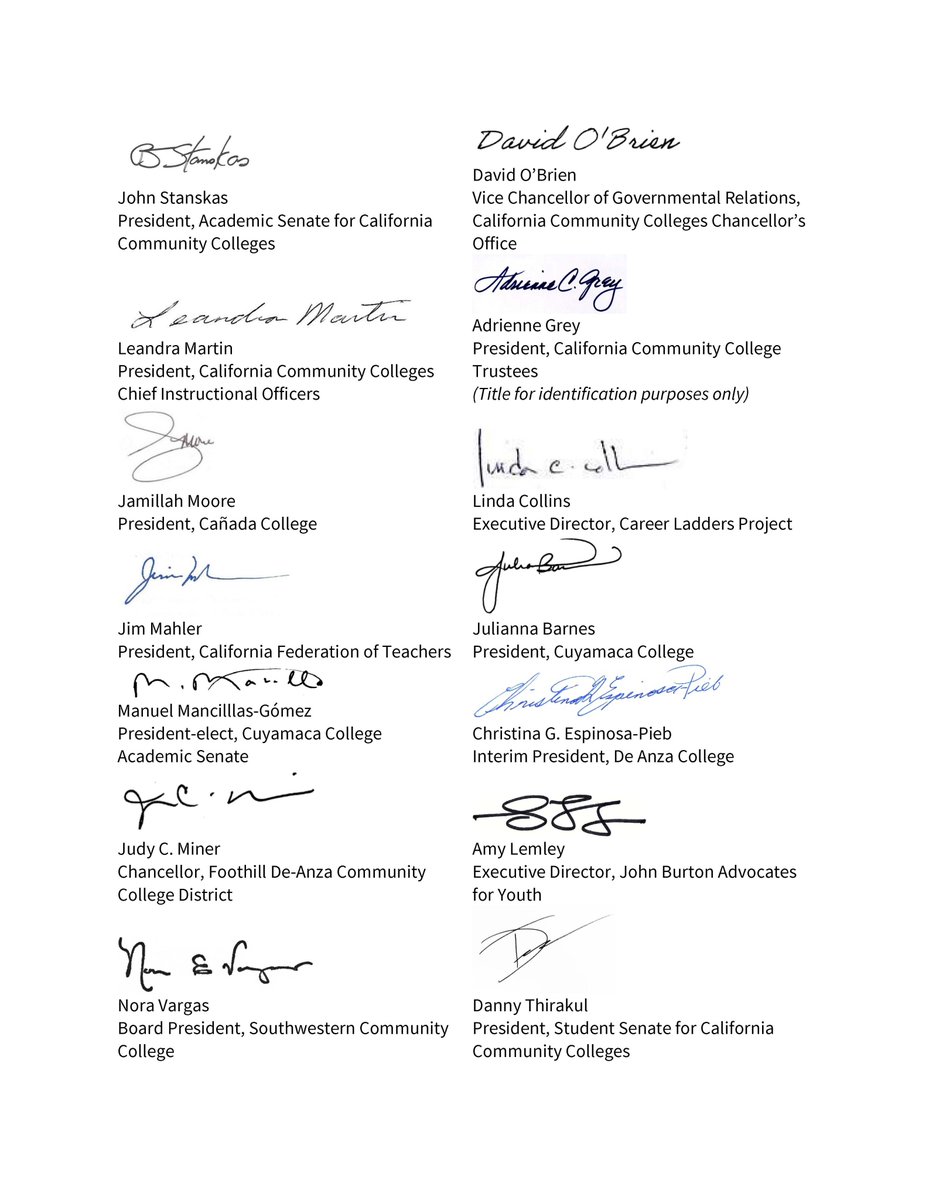 B Stanskas
John Stanskas
President, Academic Senate for California
Community Colleges
David O'Brien
David O’Brien
Vice Chancellor of Governmental Relations,
California Community Colleges Chancellor’s
Office
Leandra Martin
Leandra Martin
President, California Community Colleges
Chief Instructional Officers
Adrienne C. Grey
Adrienne Grey
President, California Community College
Trustees
(Title for identification purposes only)
Jamillah Moore
President, Cañada College
Linda C. Coll
Linda Collins
Executive Director, Career Ladders Project
Jim Mahler
President, California Federation of Teachers
Julianna Barnes
President, Cuyamaca College
M. Mancilla
Manuel Mancilllas-Gómez
President-elect, Cuyamaca College
Academic Senate
Christina G Espinosa-Pieb
Christina G. Espinosa-Pieb
Interim President, De Anza College
Judy C. Miner
Chancellor, Foothill De-Anza Community
College District
Amy Lemley
Executive Director, John Burton Advocates
for Youth
Nora E Vargas
Nora Vargas
Board President, Southwestern Community
College
Danny Thirakul
President, Student Senate for California
Community Colleges